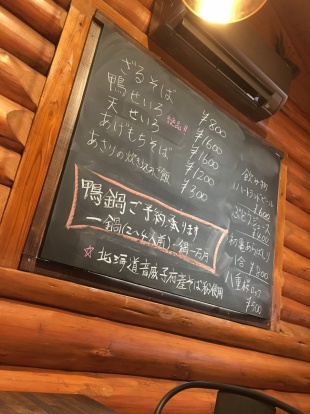 ざるそば ¥800
鴨せいろ ¥1600
天せいろ ¥1600
あげもちそば ¥1200
あさりの炊き込みご飯 ¥300
鴨鍋ご予約承ります
一鍋(二〜4人前) 一鍋一万円
☆北海道音威子府産そば粉使用
飲み物
ハートランドビール
¥600
ぶどうジュース
¥400
一合 ¥800
八重桜ロック
¥500